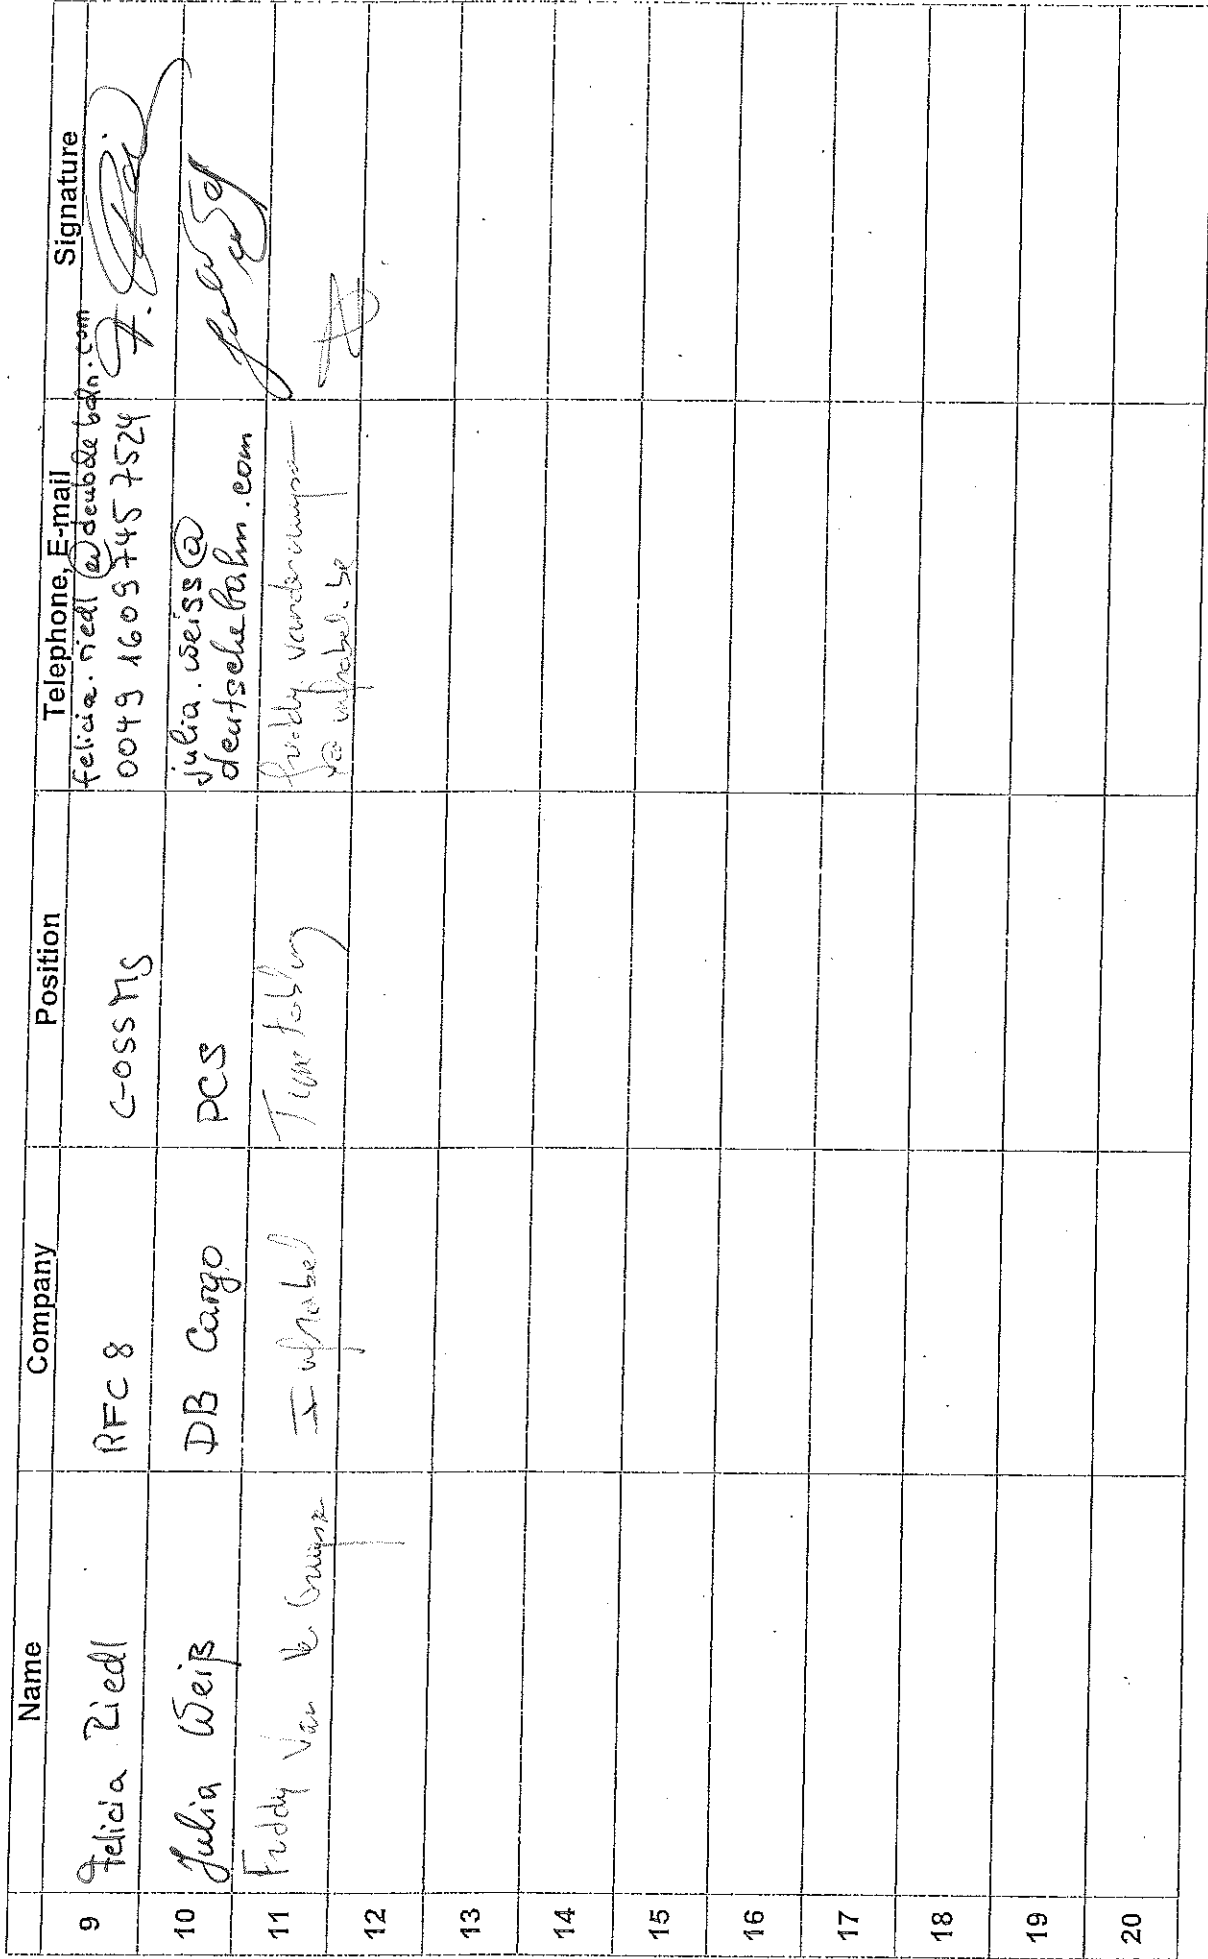 Name Company Position Telephone, E-mail Signature
9 Felicia Riedl RFC 8 C-OSS MS felicia.riedl@deutschebahn.com
0049 160 9745 7524
F. Riedl
10 Julia Weiß DB Cargo PCS julia.weiss@
deutschebahn.com
11 Freddy Van Infrabel Time tabling freddy.
@infrabel.be
12
13
14
15
16
17
18
19
20